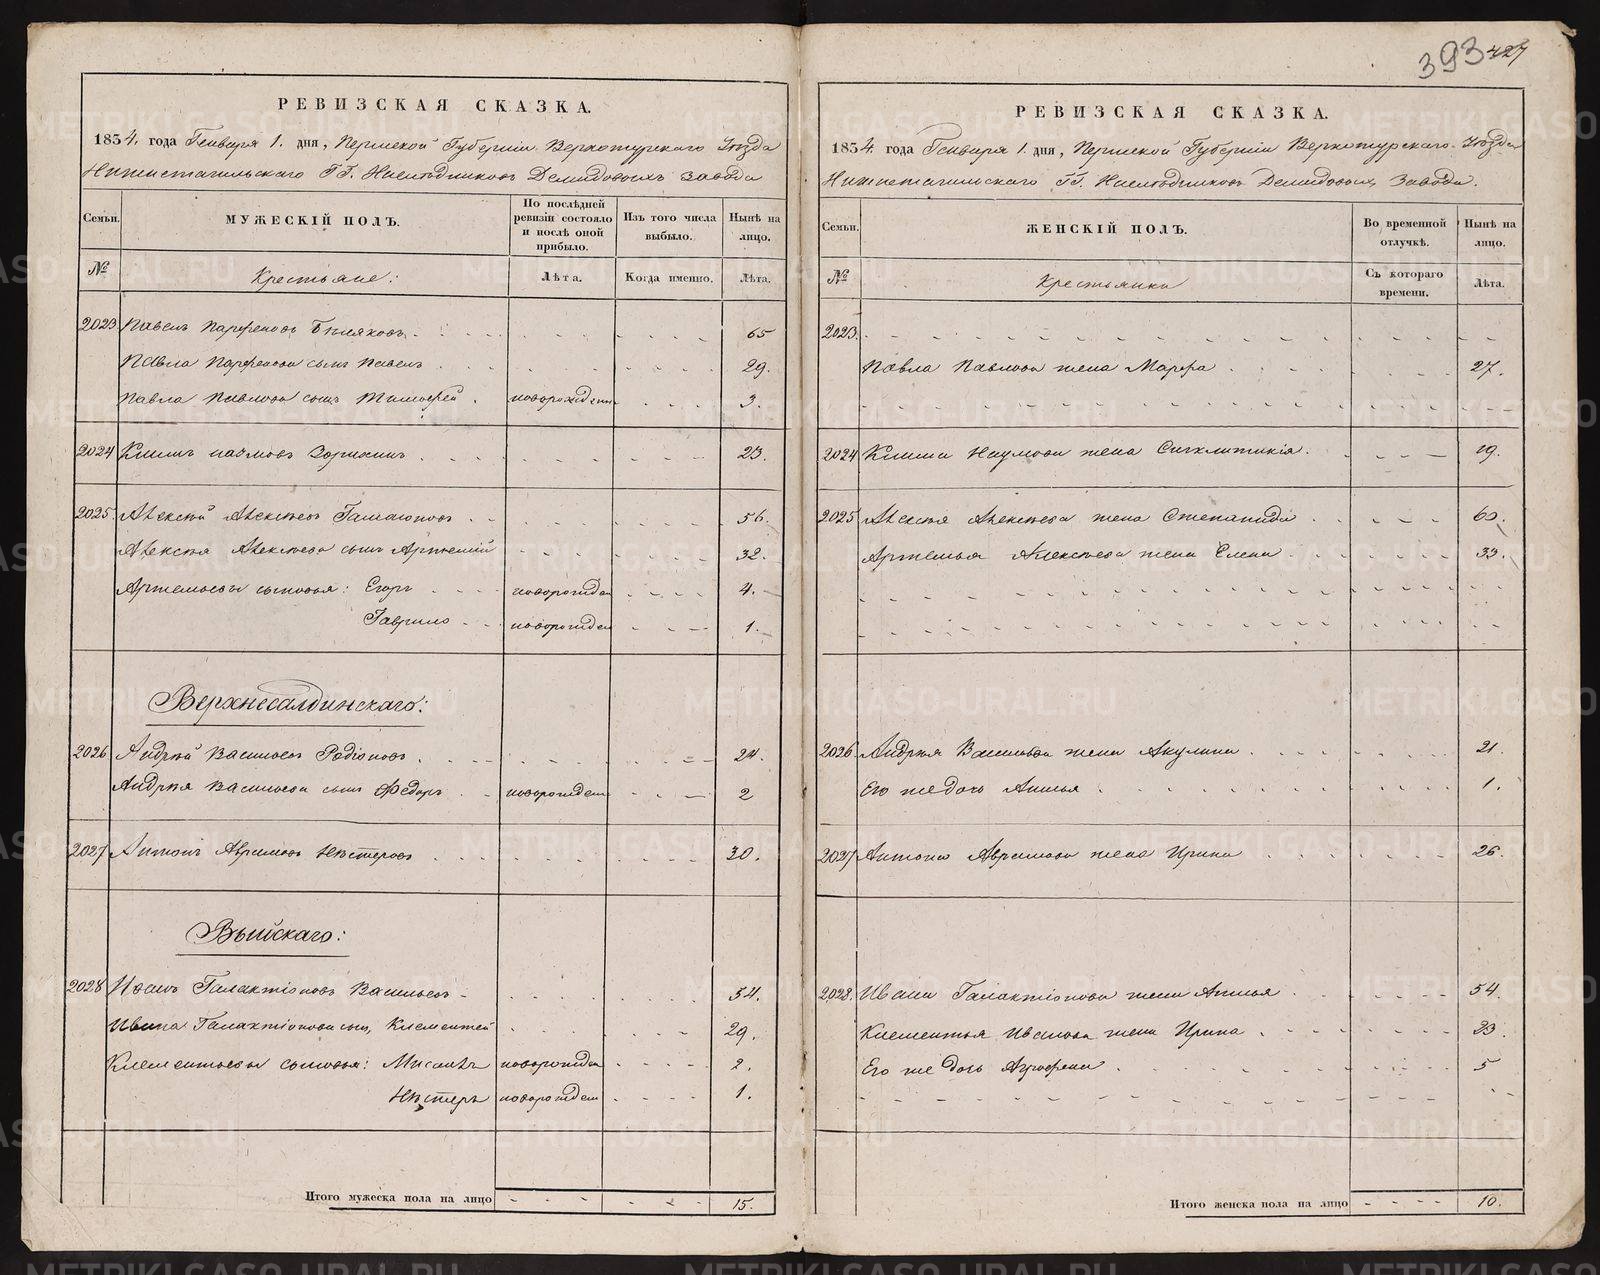 393 427
РЕВИЗСКАЯ СКАЗКА.
1834. года Генваря 1. дня, Пермской Губернии Верхотурскаго Уѣзда
Нижнетагильскаго ГГ. Наслѣдниковъ Демидовыхъ завода
Семьи. МУЖЕСКІЙ ПОЛЪ. По послѣдней ревизіи состояло и послѣ оной прибыло. Изъ того числа выбыло. Нынѣ на лицо.
№ Крестьяне: Лѣта. Когда именно. Лѣта.
2023 Павелъ Парфеновъ Бѣляковъ 65
Павла Парфенова сынъ Павелъ 29.
Павла Павлова сынъ Тимофей новорожден 3.
2024 Климъ Наумовъ Зорихинъ 23.
2025. Алексѣй Алексѣевъ Галактіоновъ 56.
Алексѣя Алексѣева сынъ Артемій 32.
Артемьевы сыновья: Егоръ новорожден 4.
Гаврило новорожден 1.
Верхнесалдинскаго:
2026 Андрей Васильевъ Родіоновъ 24.
Андрея Васильева сынъ Федоръ новорожден 2
2027 Антонъ Аврамовъ Нестеровъ 30.
Выйскаго:
2028 Иванъ Галактіоновъ Васильевъ 54.
Ивана Галактіонова сынъ Клементей 29.
Клементьевы сыновья: Мисаилъ новорожден 2.
Нестеръ новорожден 1.
Итого мужеска пола на лицо 15.
РЕВИЗСКАЯ СКАЗКА.
1834. года Генваря 1. дня, Пермской Губерніи Верхотурскаго Уѣзда
Нижнетагильскаго ГГ. Наслѣдниковъ Демидовыхъ завода.
Семьи. ЖЕНСКІЙ ПОЛЪ. Во временной отлучкѣ. Нынѣ на лицо.
№ Крестьянки Съ котораго времени. Лѣта.
2023.
Павла Павлова жена Марфа 27.
2024 Клима Наумова жена Сигклитикія 19.
2025 Алексѣя Алексѣева жена Степанида 60.
Артемья Алексѣева жена Елена 33.
2026 Андрея Васильева жена Акулина 21.
Его же дочь Анисья 1.
2027 Антона Аврамова жена Ирина 26.
2028. Ивана Галактіонова жена Анисья 54.
Клементья Иванова жена Ирина 23.
Его же дочь Агрофена 5
Итого женска пола на лицо 10.
METRIKI.GASO-URAL.RU